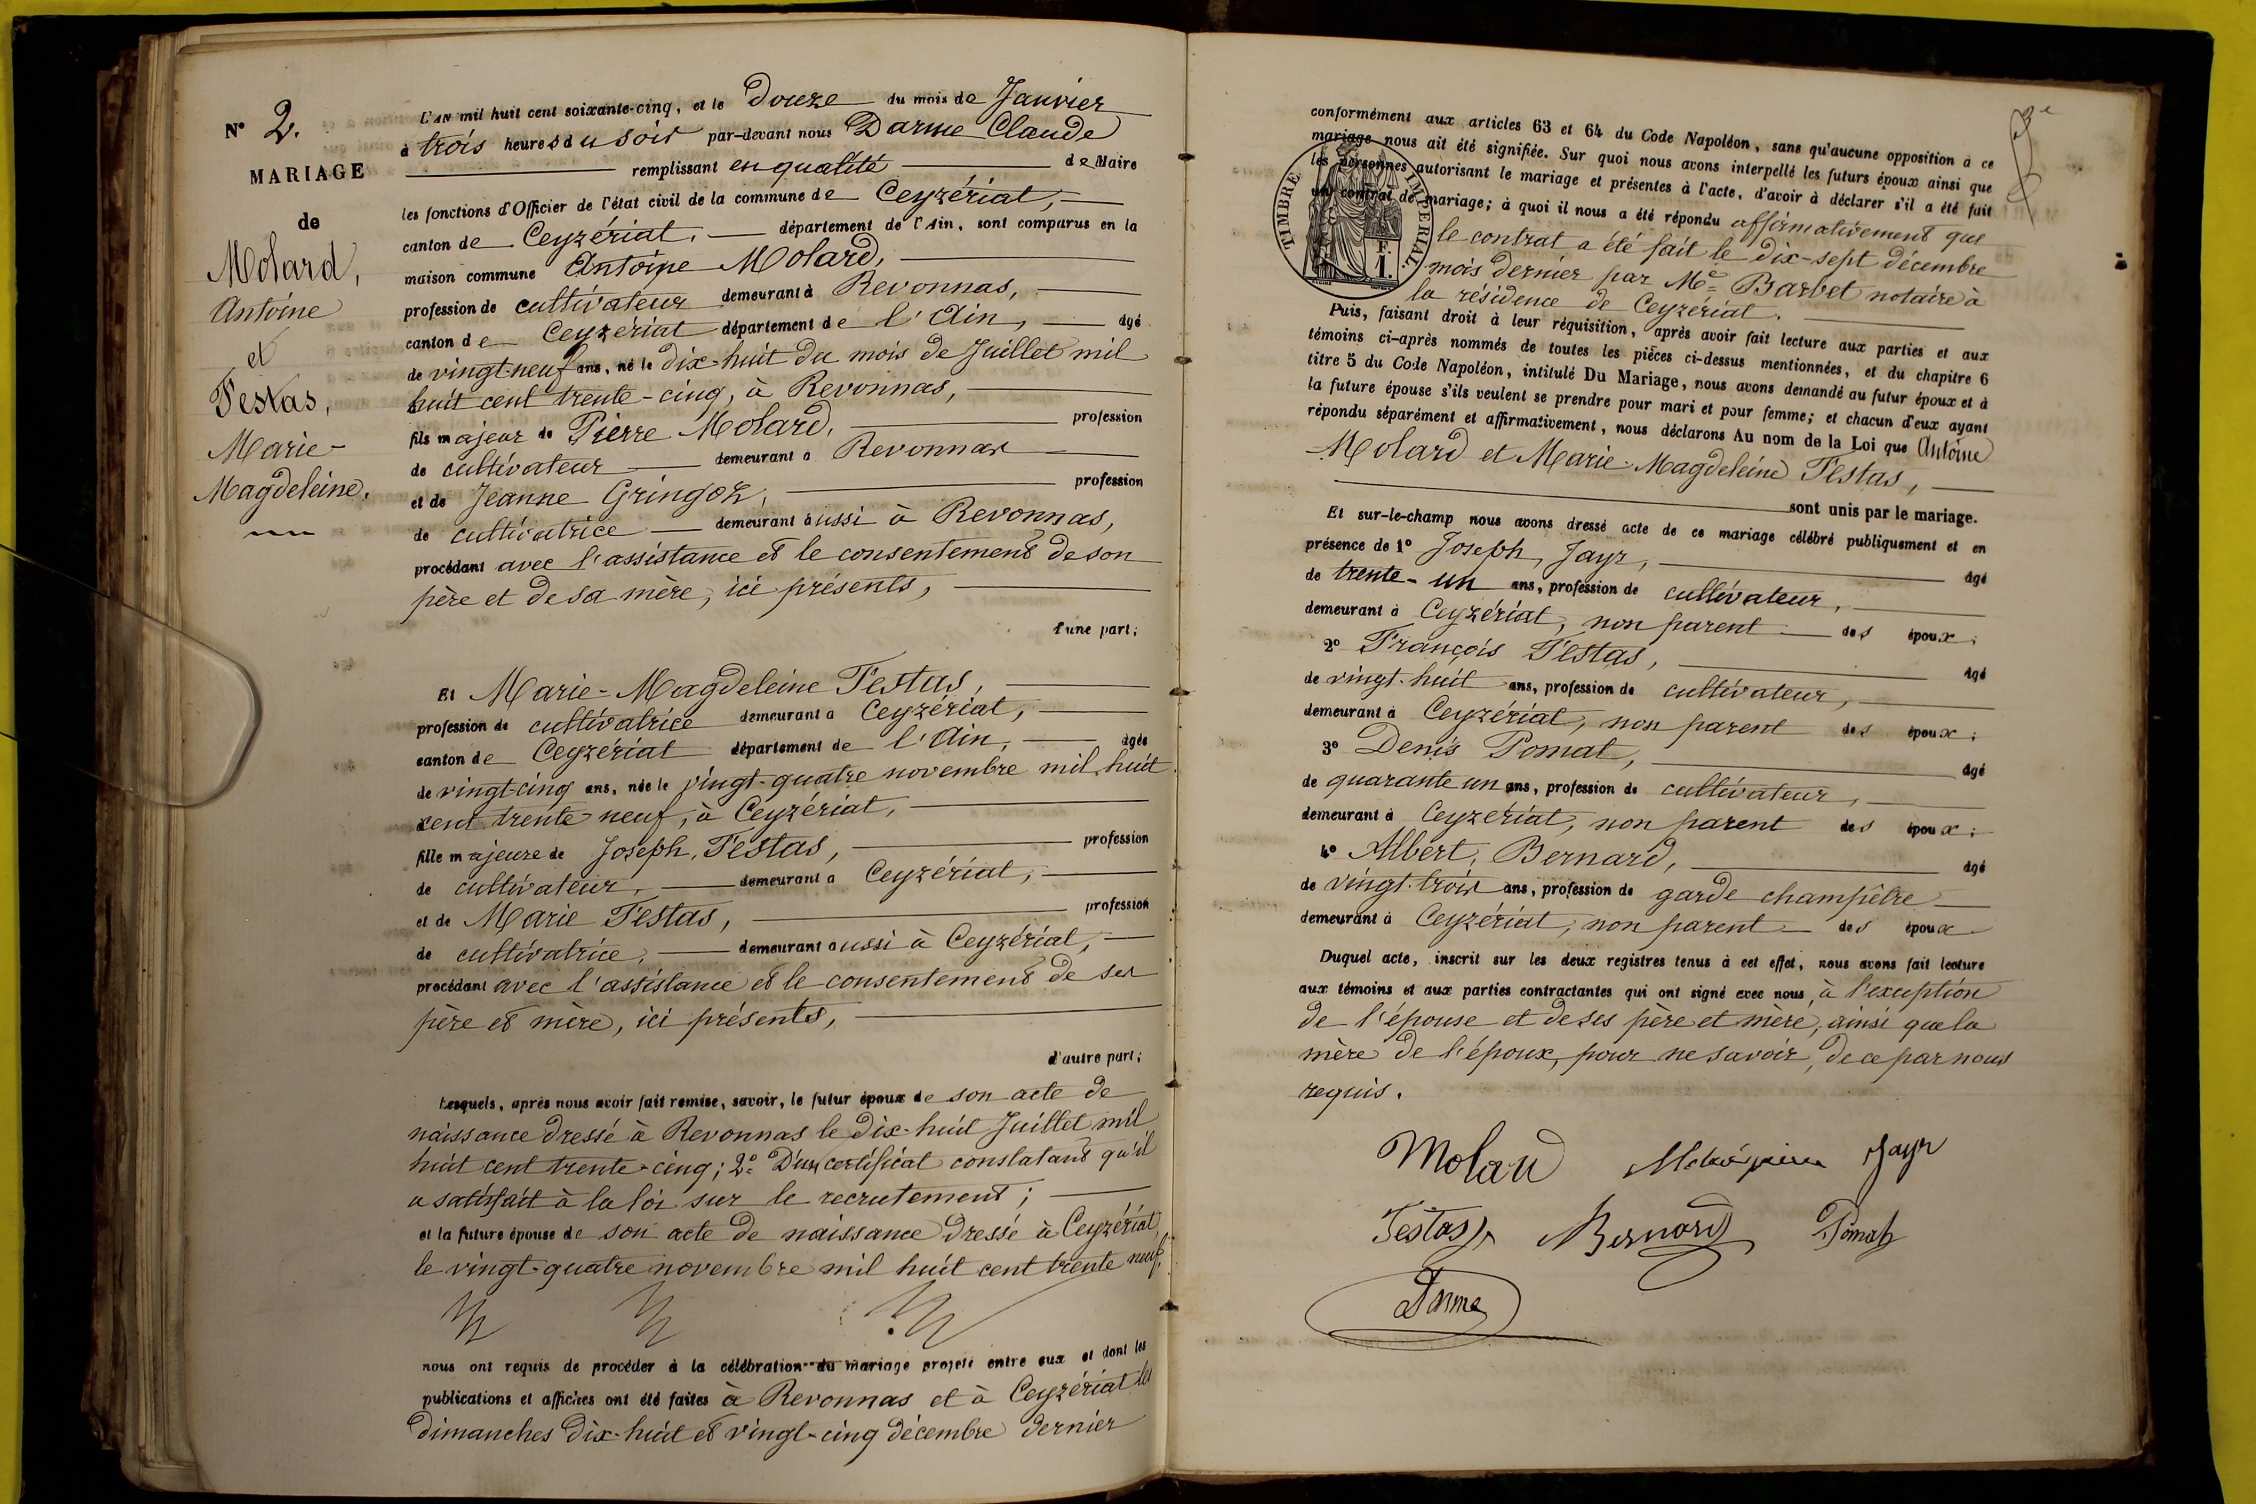 N° 2.
MARIAGE
de
Molard,
Antoine
et
Testas,
Marie-
Magdeleine.
L'AN mil huit cent soixante-cinq, et le Douze du mois de Janvier
à trois heures du soir par-devant nous Darme Claude
remplissant en qualité de Maire
les fonctions d'Officier de l'état civil de la commune de Ceyzériat,
canton de Ceyzériat, département de l'Ain, sont comparus en la
maison commune Antoine Molard,
profession de cultivateur demeurant à Revonnas,
canton de Ceyzériat département de l'Ain, âgé
de vingt-neuf ans, né le dix-huit du mois de Juillet mil
huit cent trente-cinq, à Revonnas,
fils majeur de Pierre Molard, profession
de cultivateur demeurant à Revonnas
et de Jeanne Gringoz, profession
de cultivatrice demeurant aussi à Revonnas,
procédant avec l'assistance et le consentement de son
père et de sa mère, ici présents,
d'une part;
Et Marie-Magdeleine Testas,
profession de cultivatrice demeurant à Ceyzériat,
canton de Ceyzériat département de l'Ain, âgée
de vingt-cinq ans, née le vingt-quatre novembre mil huit
cent trente neuf, à Ceyzériat,
fille majeure de Joseph, Testas, profession
de cultivateur, demeurant à Ceyzériat,
et de Marie Testas, profession
de cultivatrice, demeurant aussi à Ceyzériat,
procédant avec l'assistance et le consentement de ses
père et mère, ici présents,
d'autre part;
Lesquels, après nous avoir fait remise, savoir, le futur époux de son acte de
naissance dressé à Revonnas le dix-huit Juillet mil
huit cent trente-cinq; 2° D'un certificat constatant qu'il
a satisfait à la loi sur le recrutement;
et la future épouse de son acte de naissance dressé à Ceyzériat,
le vingt-quatre novembre mil huit cent trente neuf,
nous ont requis de procéder à la célébration du mariage projeté entre eux et dont les
publications et affiches ont été faites à Revonnas et à Ceyzériat les
dimanches dix-huit et vingt-cinq décembre dernier
conformément aux articles 63 et 64 du Code Napoléon, sans qu'aucune opposition à ce
mariage nous ait été signifiée. Sur quoi nous avons interpellé les futurs époux ainsi que
les personnes autorisant le mariage et présentes à l'acte, d'avoir à déclarer s'il a été fait
un contrat de mariage; à quoi il nous a été répondu affirmativement que
le contrat a été fait le dix-sept décembre
mois dernier par Me Barbet notaire à
la résidence de Ceyzériat.
TIMBRE IMPÉRIAL
1 F.
Puis, faisant droit à leur réquisition, après avoir fait lecture aux parties et aux
témoins ci-après nommés de toutes les pièces ci-dessus mentionnées, et du chapitre 6
titre 5 du Code Napoléon, intitulé Du Mariage, nous avons demandé au futur époux et à
la future épouse s'ils veulent se prendre pour mari et pour femme; et chacun d'eux ayant
répondu séparément et affirmativement, nous déclarons Au nom de la Loi que Antoine
Molard et Marie-Magdeleine Testas,
sont unis par le mariage.
Et sur-le-champ nous avons dressé acte de ce mariage célébré publiquement et en
présence de 1° Joseph, Jayr, âgé
de trente-un ans, profession de cultivateur,
demeurant à Ceyzériat, non parent des époux;
2° François Testas, âgé
de vingt-huit ans, profession de cultivateur,
demeurant à Ceyzériat, non parent des époux;
3° Denis Pomat, âgé
de quarante un ans, profession de cultivateur,
demeurant à Ceyzériat, non parent des époux;
4° Albert, Bernard, âgé
de vingt-trois ans, profession de garde champêtre
demeurant à Ceyzériat, non parent des époux
Duquel acte, inscrit sur les deux registres tenus à cet effet, nous avons fait lecture
aux témoins et aux parties contractantes qui ont signé avec nous, à l'exception
de l'épouse et de ses père et mère, ainsi que la
mère de l'époux, pour ne savoir, de ce par nous
requis.
Molard Jayr
Testas Bernard Pomat
Darme